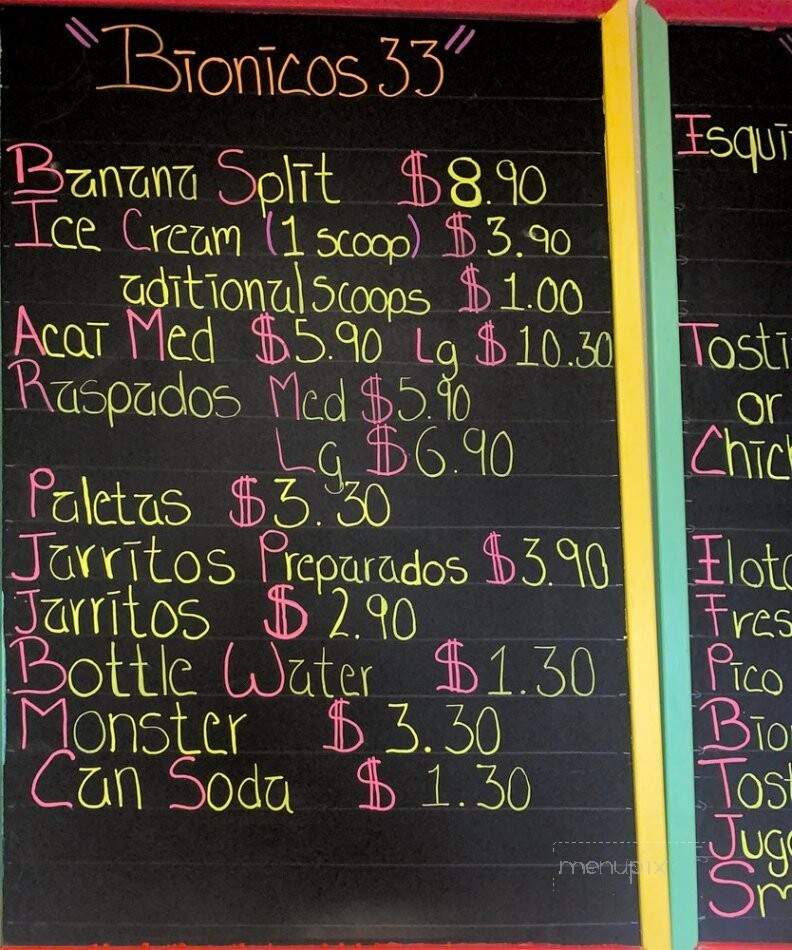 "Bionicos 33"
Banana Split $8.90
Ice Cream (1 scoop) $3.90
aditional scoops $1.00
Acai Med $5.90 Lg $10.30
Raspados Med $5.90
Lg $6.90
Paletas $3.30
Jarritos Preparados $3.90
Jarritos $2.90
Bottle Water $1.30
Monster $3.30
Can Soda $1.30
Esqui
Tosti
or
Chic
Elot
Fres
Pico
Bio
Tost
Jug
Sm
menupix